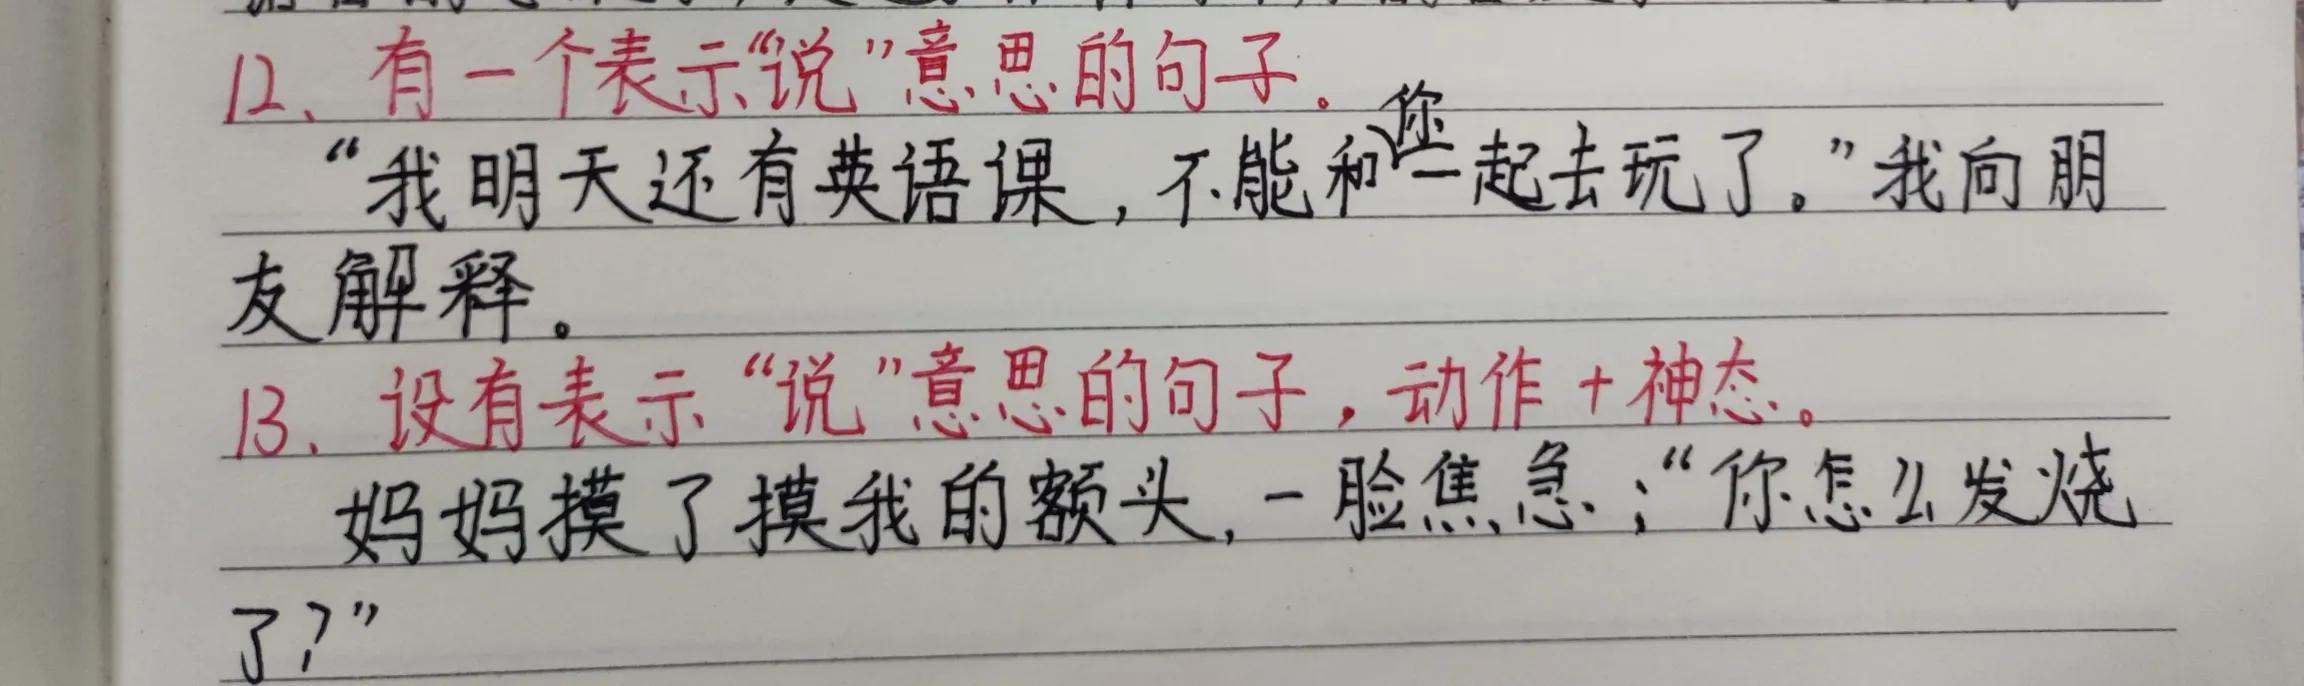 12、有一个表示“说”意思的句子。
“我明天还有英语课,不能和你一起去玩了。”我向朋
友解释。
13、没有表示“说”意思的句子,动作+神态。
妈妈摸了摸我的额头,一脸焦急;“你怎么发烧
了?”